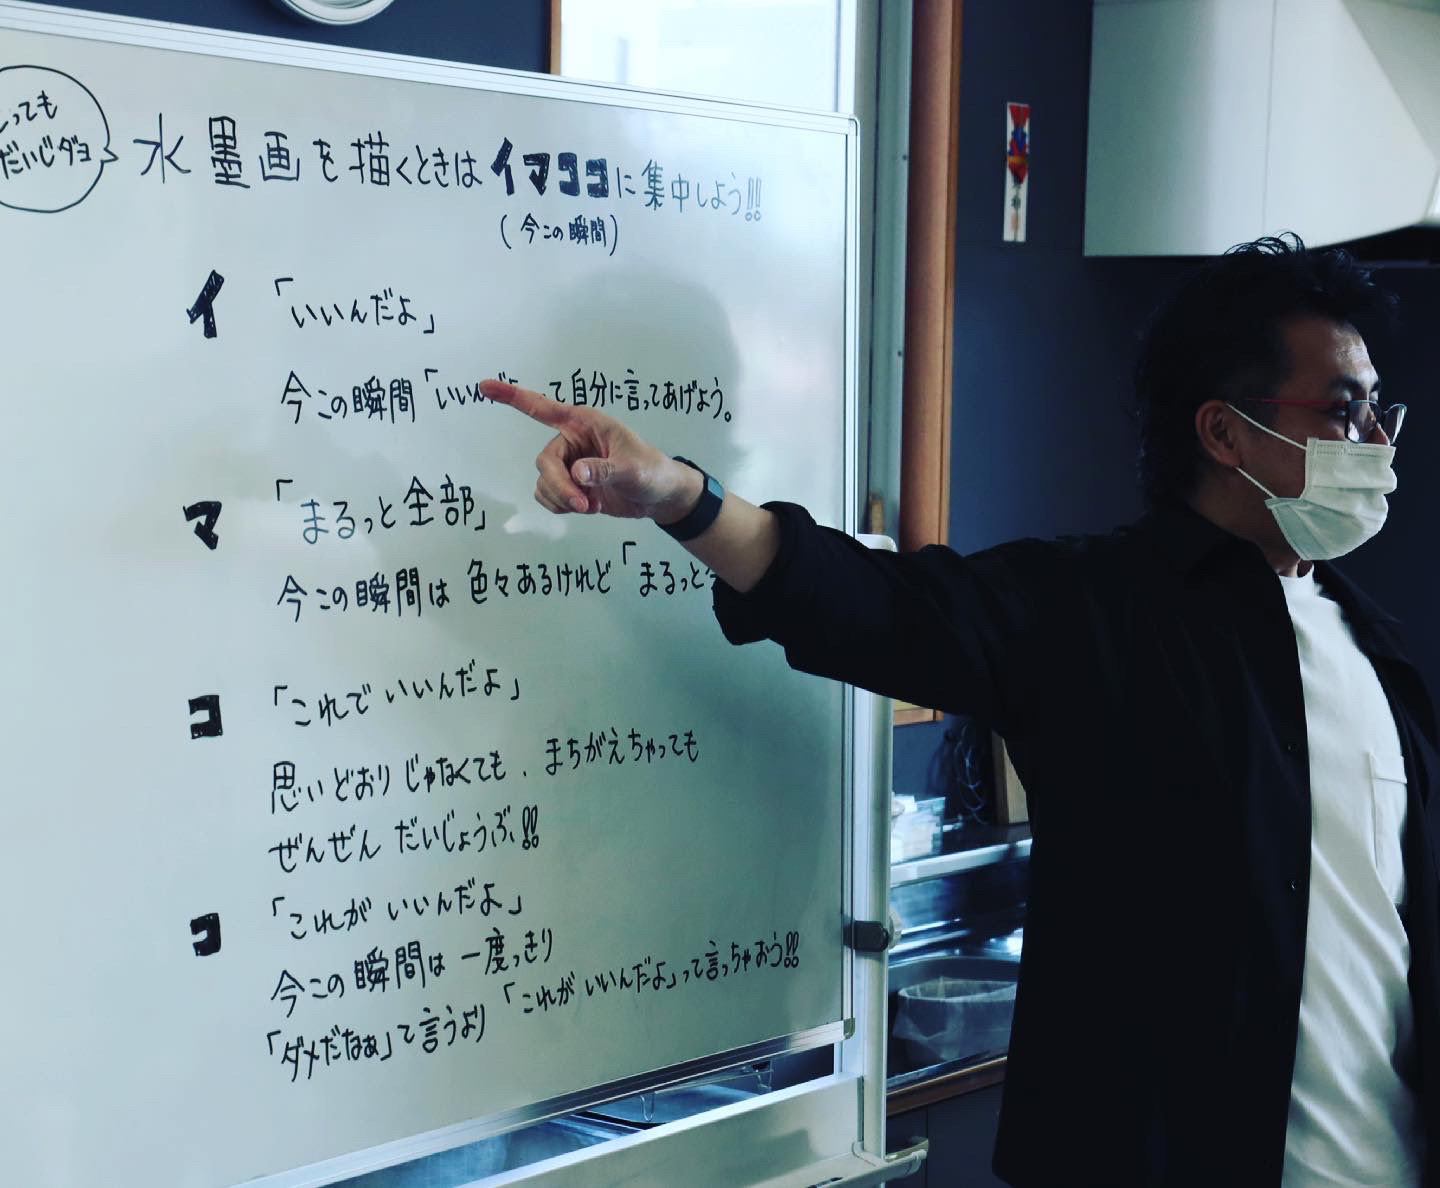 とっても
だいじダヨ
水墨画を描くときはイマココに集中しよう!!
(今この瞬間)
イ 「いいんだよ」
今この瞬間「いいんだ て自分に言ってあげよう。
マ 「まるっと全部」
今この瞬間は 色々あるけれど「まるっと
コ 「これでいいんだよ」
思いどおりじゃなくても、まちがえちゃっても
ぜんぜん だいじょうぶ!!
コ 「これがいいんだよ」
今この瞬間は一度っきり
「ダメだなぁ」て言うより「これがいいんだよ」って言っちゃおう!!